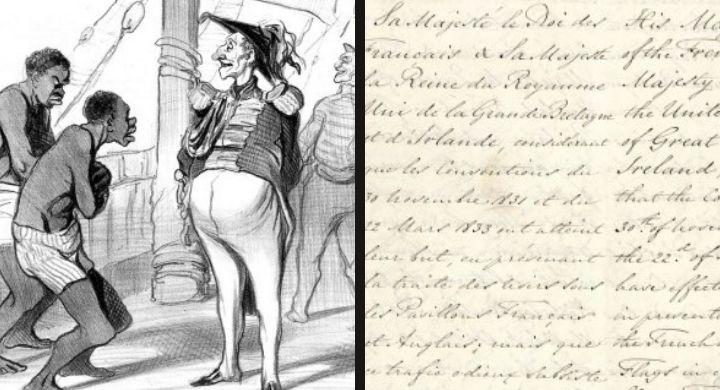 Sa Majesté le Roi des
Français & Sa Majesté
la Reine du Royaume
Uni de la Grande Bretagne
et d'Irlande considérant
que les Conventions du
30 novembre 1831 et du
22 Mars 1833 ont atteint
leur but, en prévenant
la traite des noirs sous
les Pavillons Français
et Anglais; mais que
ce trafic odieux subsiste
His Ma
of the Fren
Majesty
the United
of Great
Ireland
that the Co
30th of Nove
the 22d of
have effect
in prevent
the French
Flags in